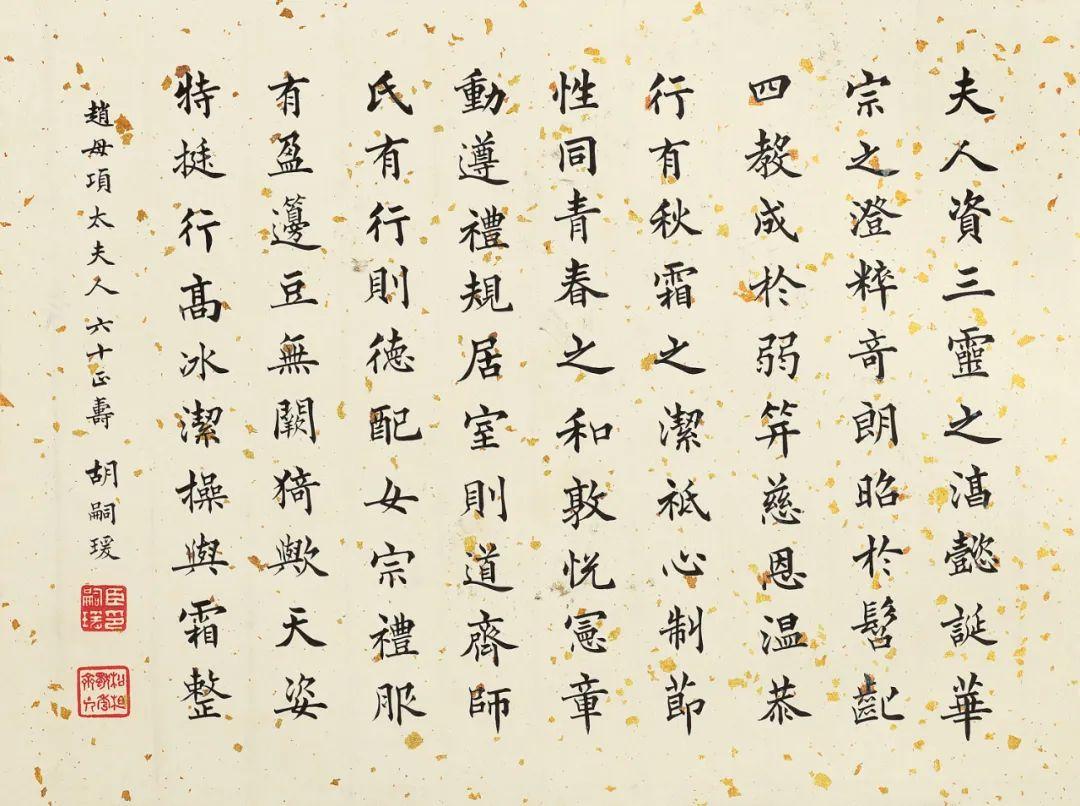 夫人資三靈之湻懿誕華
宗之澄粹奇朗昭於髫齔
四教成於弱笄慈恩温恭
行有秋霜之潔祗心制節
性同青春之和敦悅憲章
動遵禮規居室則道齊師
氏有行則德配女宗禮服
有盈籩豆無闕猗歟天姿
特挺行高冰潔操與霜整
趙母項太夫人六十正壽 胡嗣瑗
臣印嗣瑗